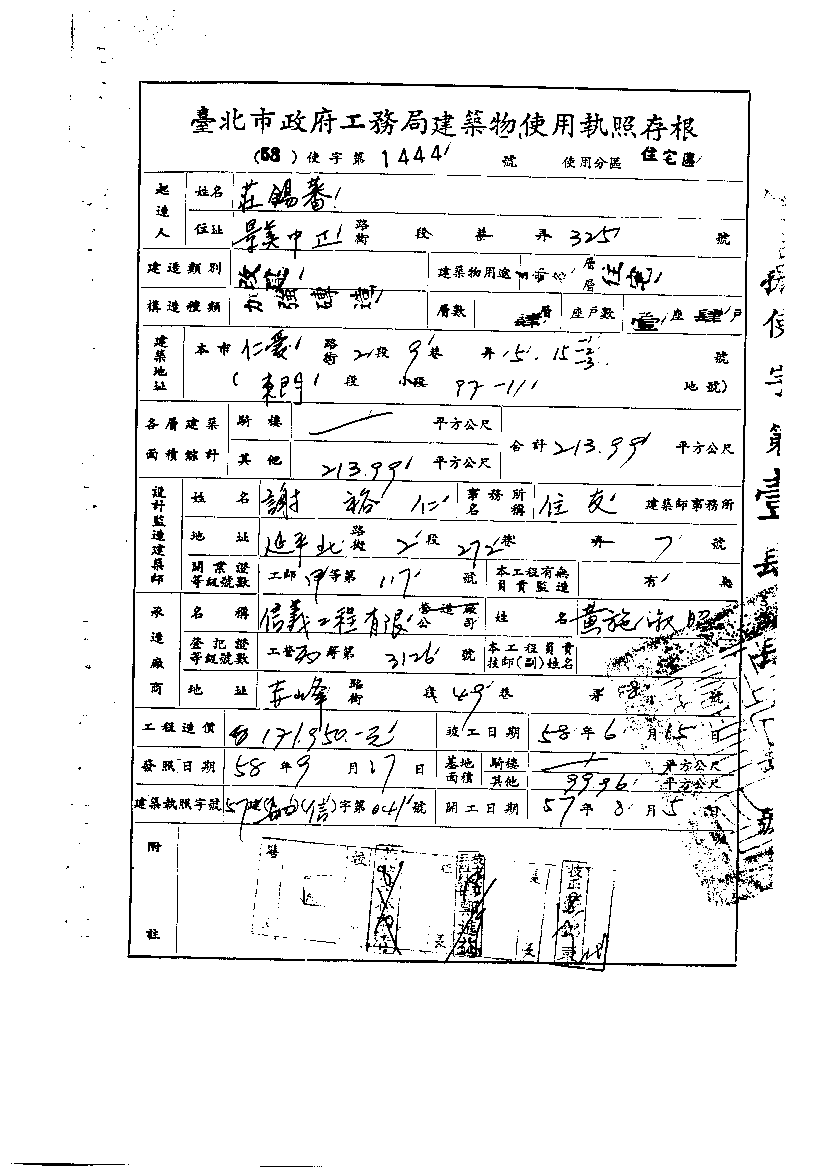 臺北市政府工務局建築物使用執照存根
(58)使字第1444號 使用分區 住宅區
起造人 姓名 莊錫蕃
住址 景美中正路街 段 巷 弄 325 號
建造類別 改建 建築物用途 層層 住宅
構造種類 加強磚造 層數 肆層 座戶數 壹座肆戶
建築地址 本市仁愛路街2段9巷 弄15. 15-1 -2 -3 號
(東門段 小段 97-11 地號)
各層建築面積總計 騎樓 平方公尺 合計213.99平方公尺
其他 213.99平方公尺
設計監造建築師 姓名 謝裕仁 事務所名稱 住友 建築師事務所
地址 延平北路街2段272巷 弄7號
開業證等級號數 工師甲等第117號 本工程有無負責監造 有 無
承造廠商 名稱 信義工程有限營造廠公司 姓名 黃施淑照
登記證等級號數 工登丙等第3126號 本工程負責技師(副)姓名
地址 赤峰路街 段49巷 弄8 號
工程造價 171950.-元 竣工日期 58年6月15日
發照日期 58年9月17日 基地面積 騎樓 平方公尺
其他 99.96平方公尺
建築執照字號 57建(信)字第041號 開工日期 57年8月5日
附註
務使字第壹